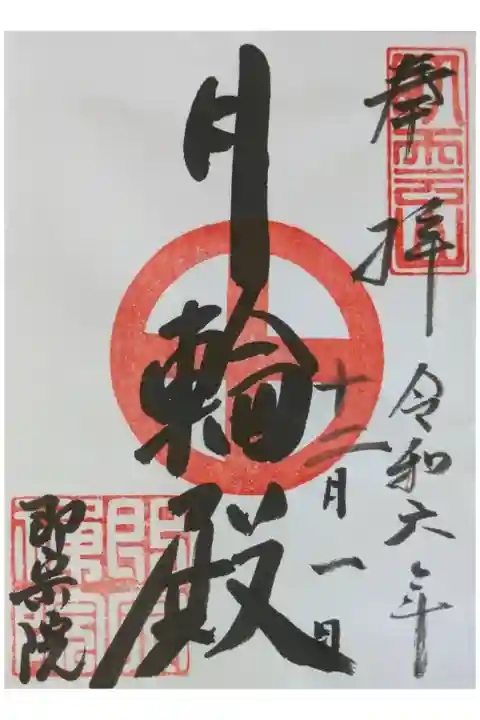 奉拝
令和六年
十二月一日
月輪殿
即宗院